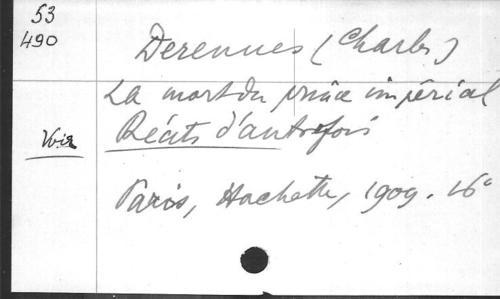 53
490
Derennes (Charles)
La mort du prince impérial
Voir
Récits d'autrefois
Paris, Hachette, 1909. 16°